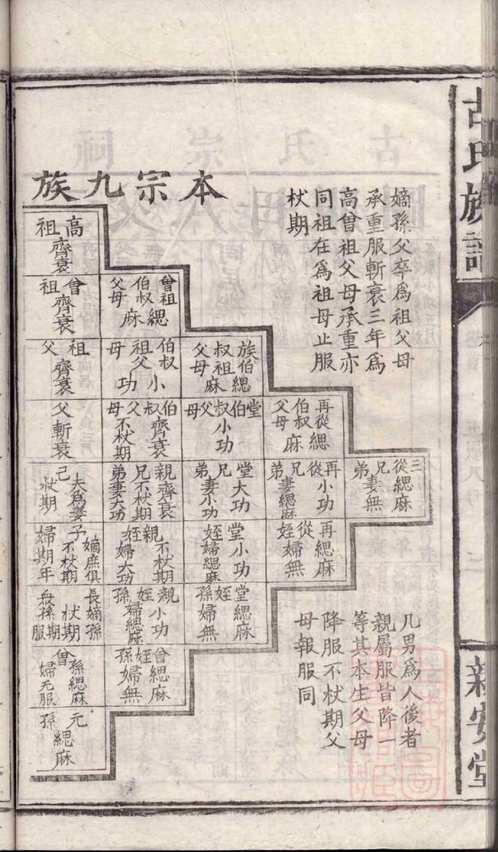 古氏族譜
新安堂
本宗九族
嫡孫父卒為祖父母
承重服斬衰三年為
高曾祖父母承重亦
同祖在為祖母止服
杖期
高祖 齊衰
曾祖 齊衰
曾祖伯叔父母 緦麻
祖父 齊衰
伯叔祖父母 小功
族伯叔祖父母 緦麻
父 斬衰
伯叔父母 齊衰不杖期
堂伯叔父母 小功
再從伯叔父母 緦麻
己 夫為妻杖期
親兄弟 齊衰不杖期 妻大功
堂兄弟 大功 妻小功
再從兄弟 小功 妻緦麻
三從兄弟 緦麻 妻無
子 嫡庶俱不杖期 婦期年
親姪 不杖期 姪婦大功
堂姪 小功 姪婦緦麻
再從姪 緦麻 婦無
長嫡孫 杖期 孫期服
親姪孫 小功 孫婦緦麻
堂姪孫 緦麻 孫婦無
曾孫 緦麻 婦无服
曾姪孫 緦麻 孫婦無
元孫 緦麻
凡男為人後者
親屬服皆降一
等其本生父母
降服不杖期父
母報服同